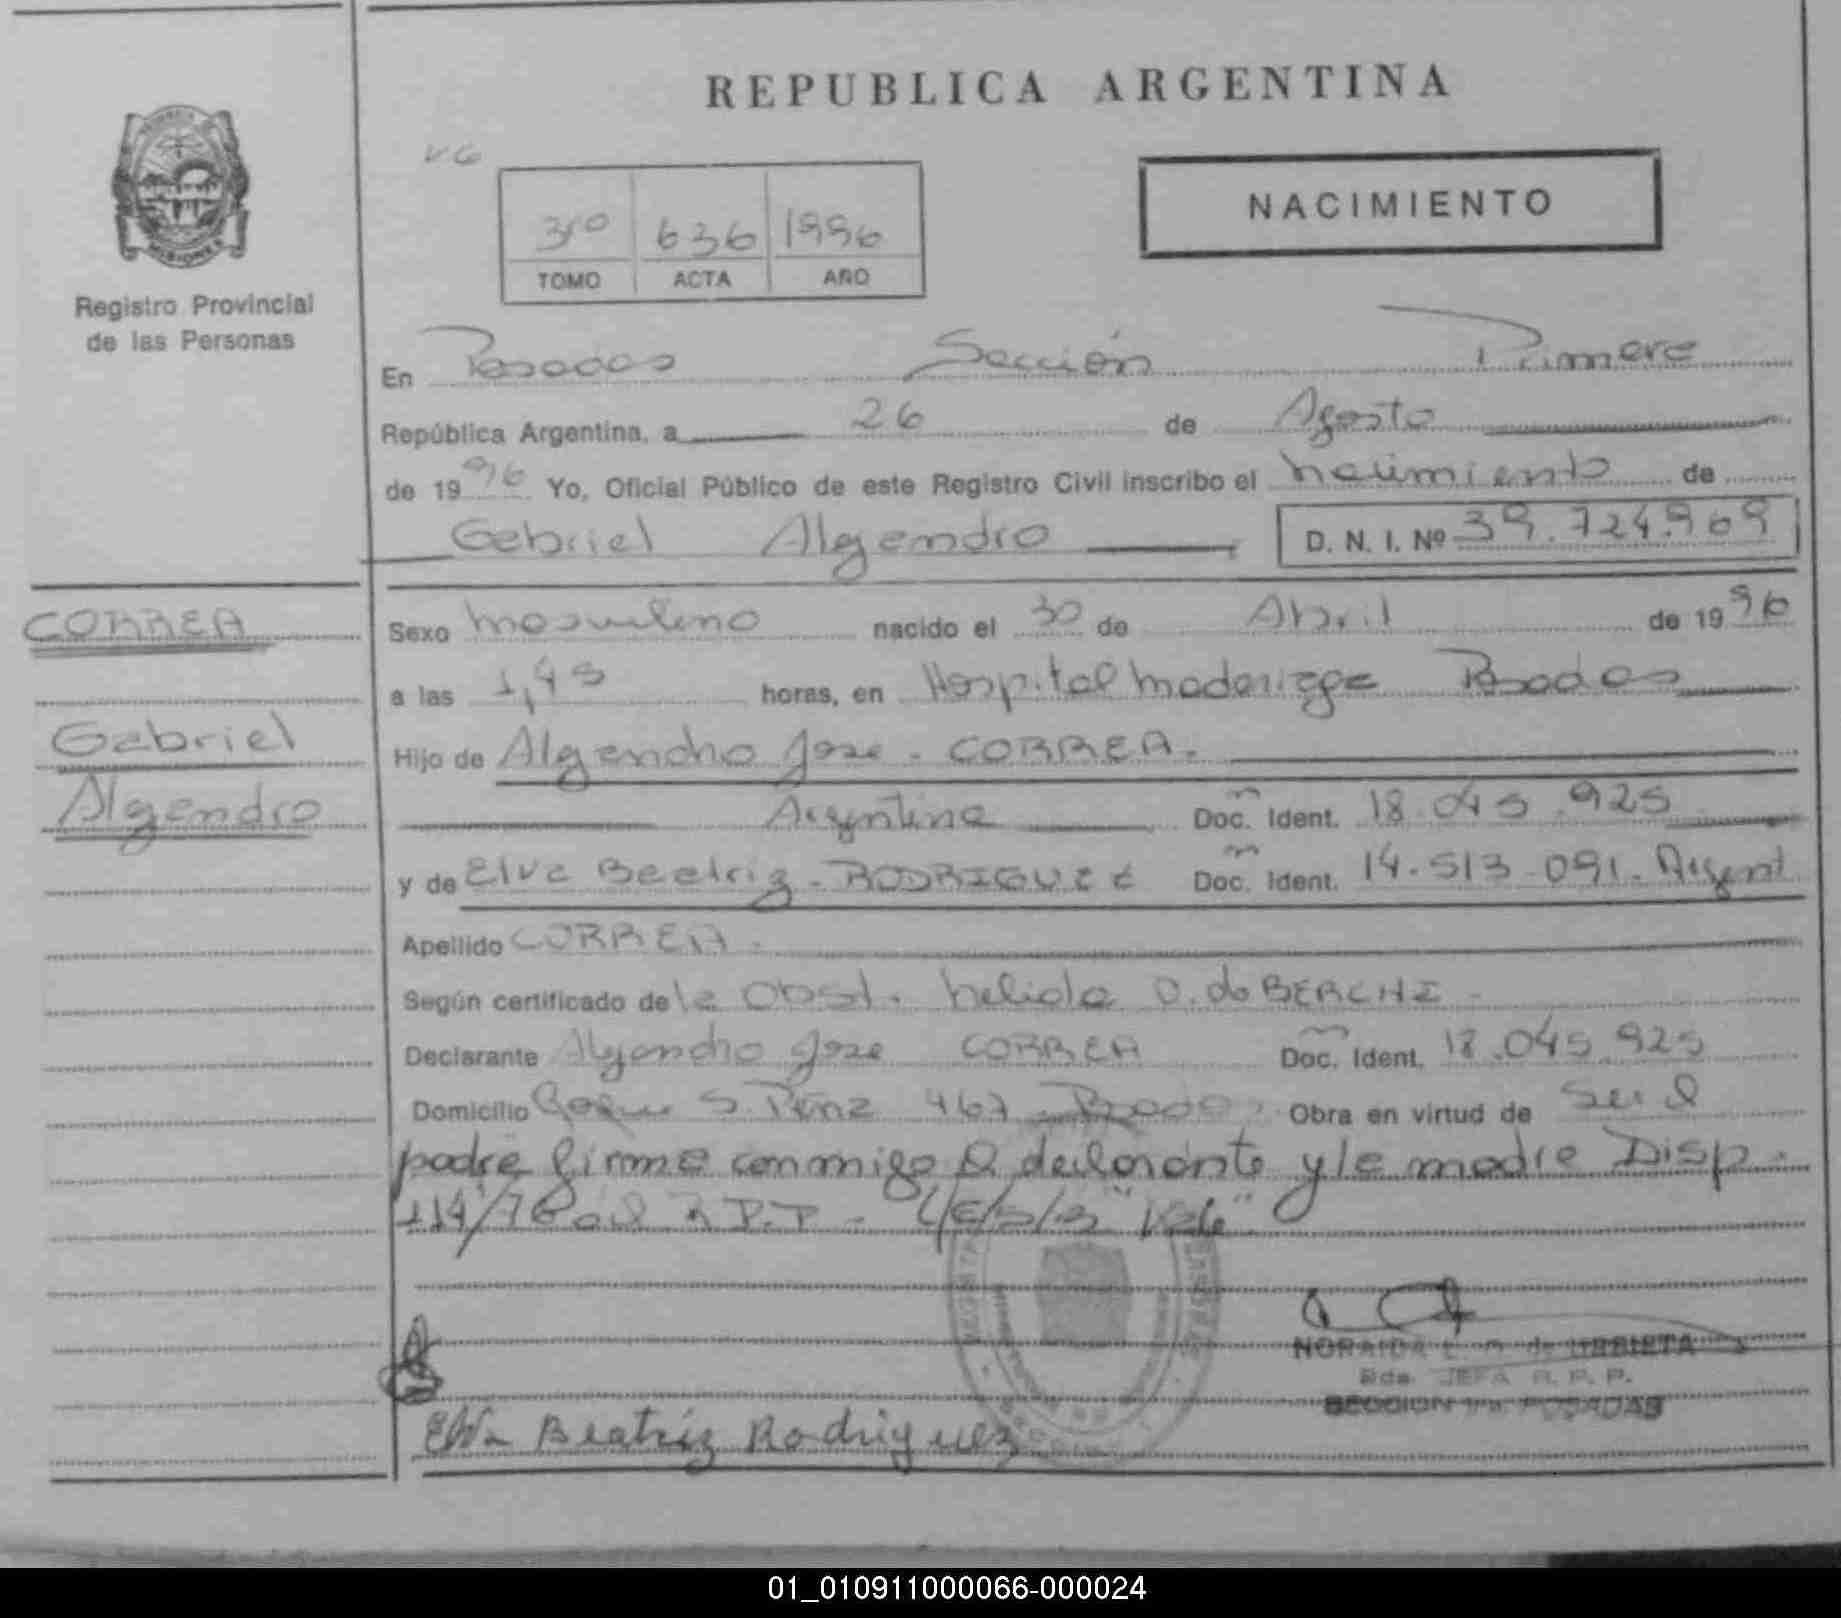 REPUBLICA ARGENTINA
MISIONES
Registro Provincial
de las Personas
NACIMIENTO
3ro 636 1996
TOMO ACTA AÑO
En Posadas Sección Primera
República Argentina, a 26 de Agosto
de 1996 Yo, Oficial Público de este Registro Civil inscribo el nacimiento de
Gabriel Alejandro D. N. I. Nº 39.724.969
CORREA
Gabriel
Alejandro
Sexo masculino nacido el 30 de Abril de 1996
a las 1,45 horas, en Hospital Madariaga Posadas
Hijo de Alejandro Jose - CORREA.
Argentina Doc. Ident. 18.045.925
y de Elva Beatriz - RODRIGUEZ Doc. Ident. 14.513.091. Argent
Apellido CORREA.
Según certificado de la Obst. Nelida O. de BERCHI
Declarante Alejandro Jose CORREA Doc. Ident. 18.045.925
Domicilio Roque S. Peña 467 Posadas Obra en virtud de Ser el
padre firma conmigo el declarante y la madre Disp.
114/76 del R.P.P -
Elva Beatriz Rodriguez
NORAIDA de URRIETA
JEFA R. P. P.
SECCION 1ra. POSADAS
01_010911000066-000024